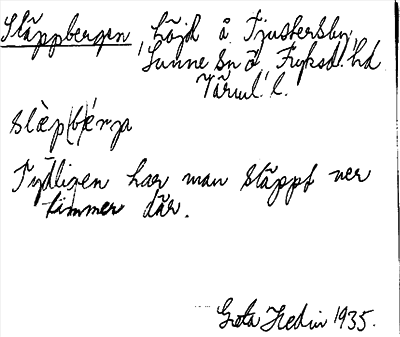 Släppbergen, höjd å Fjusbersby,
Sunne sn ö. Fryksd. hd
Värml. l.
slèp(b)érja
Tydligen har man släppt ner
timmer där.
Greta Hedin 1935.